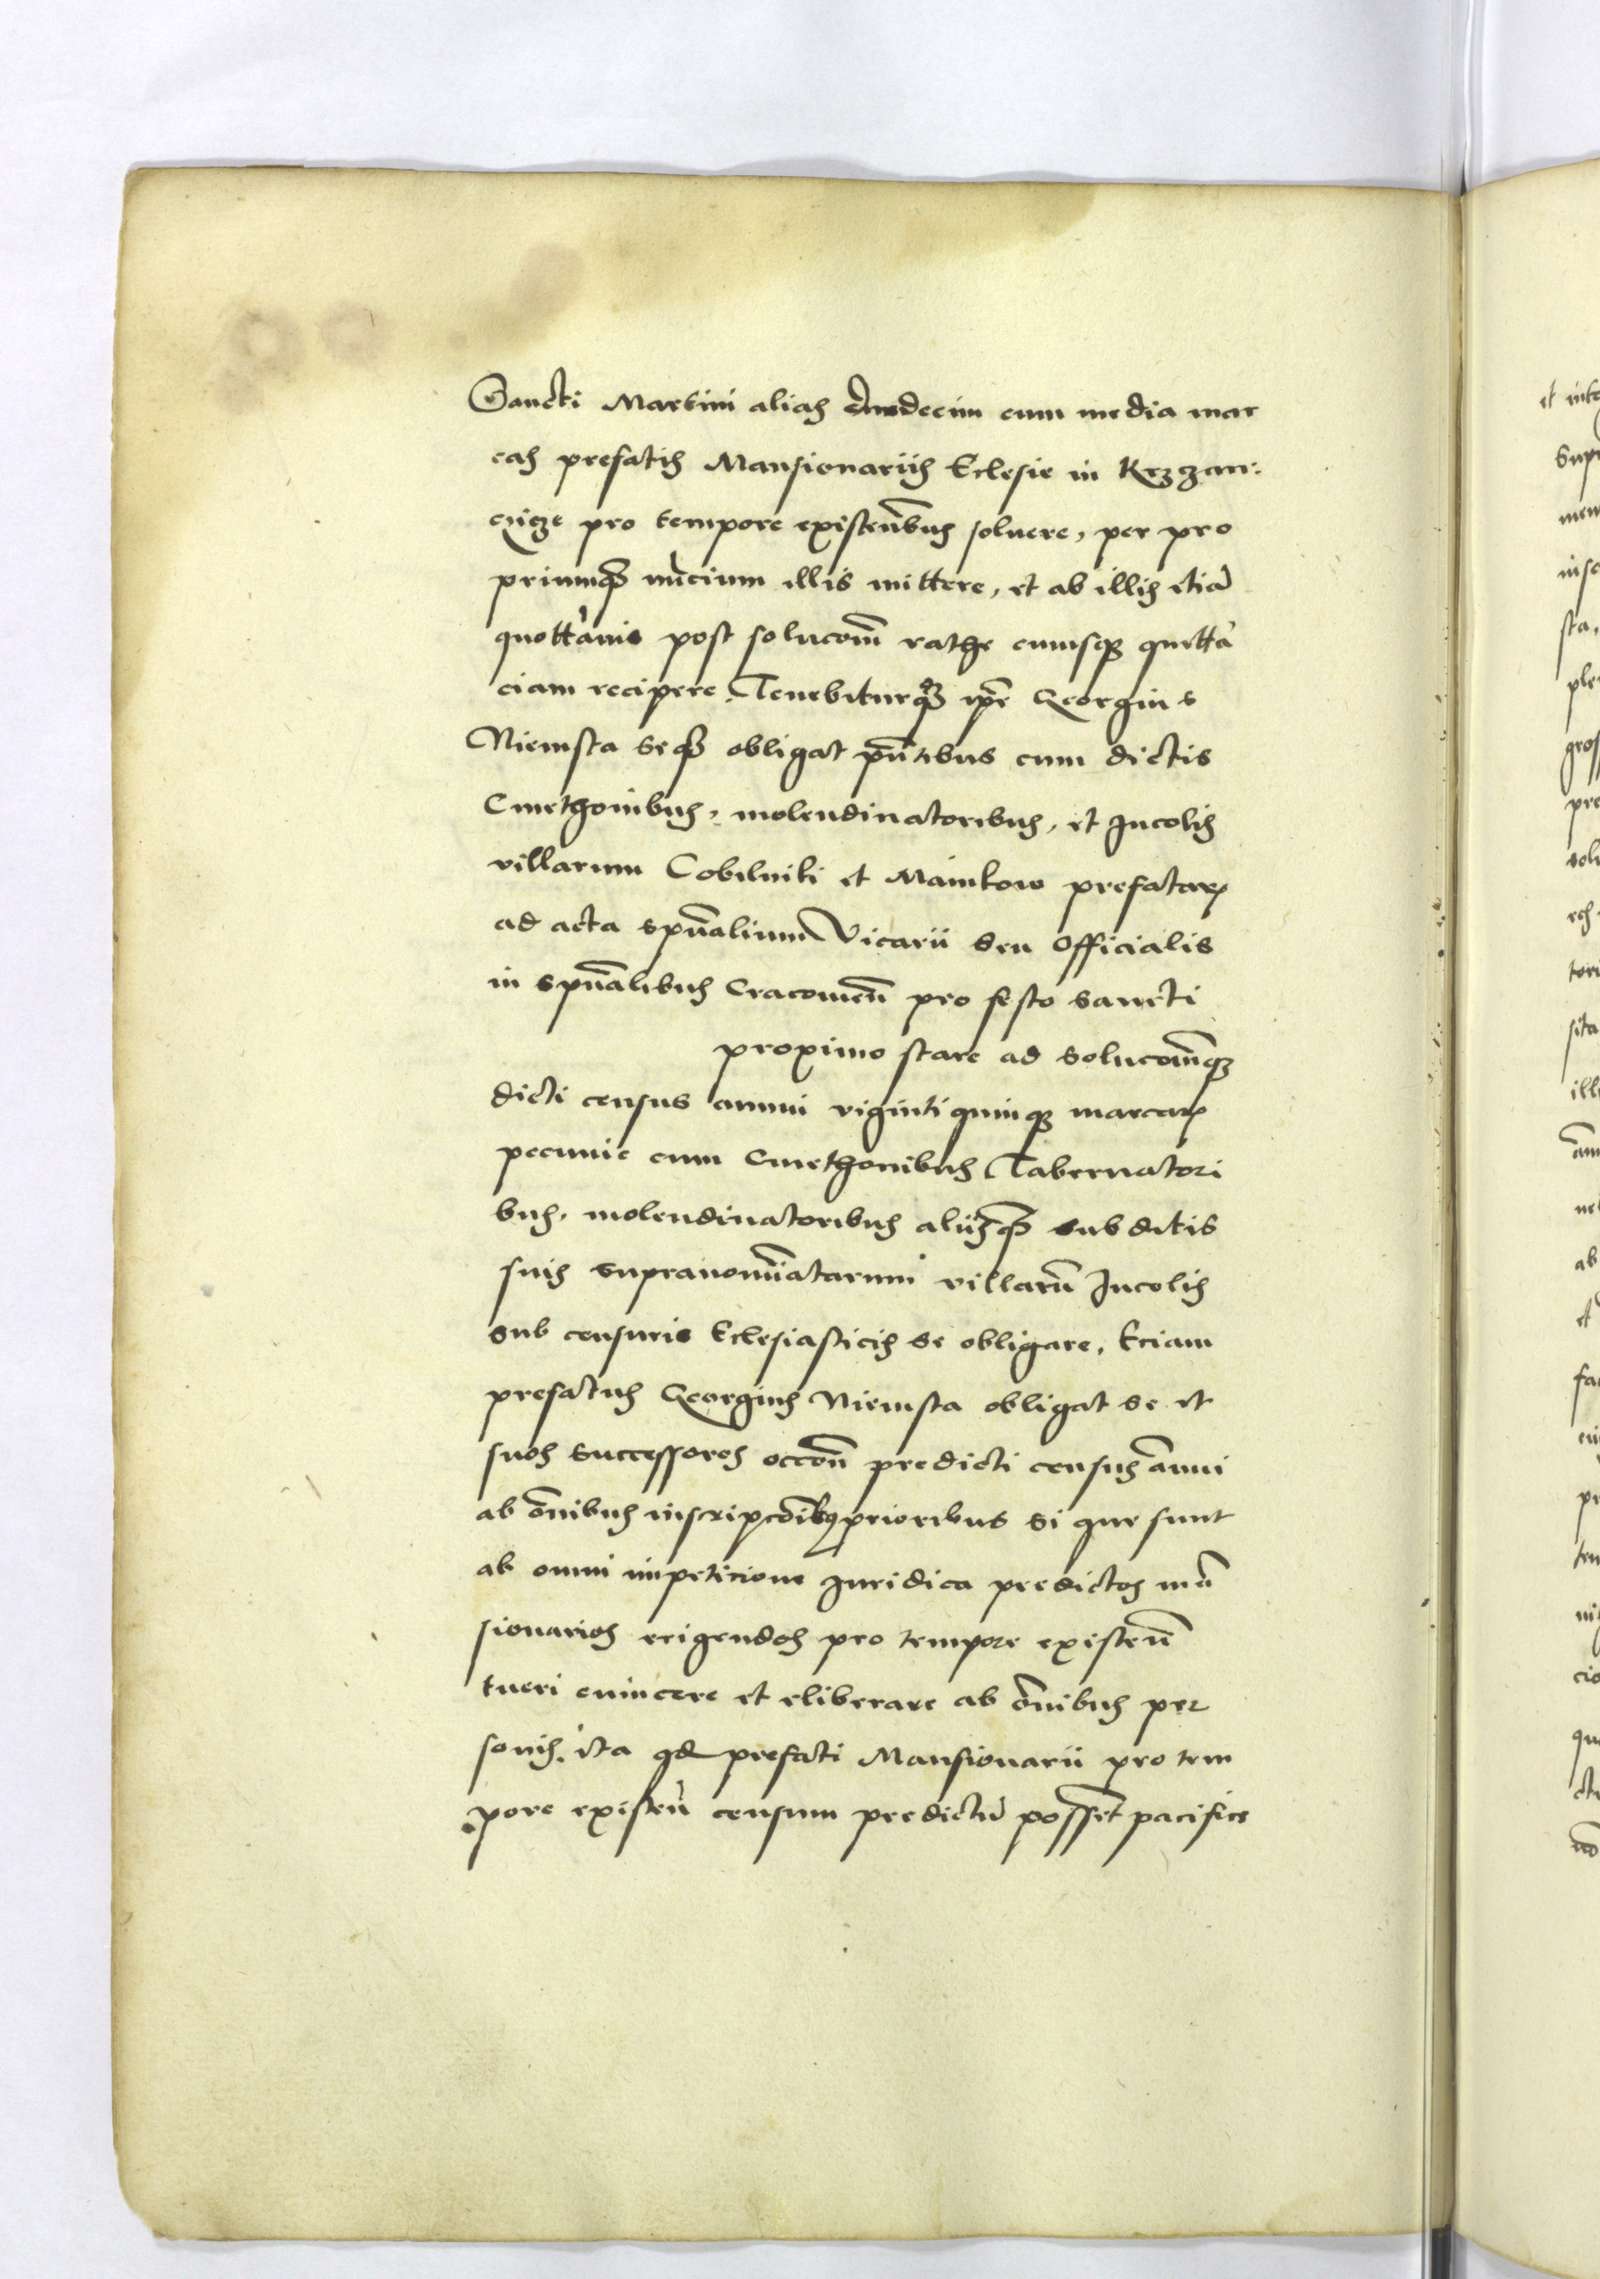 Sancti Martini alias duodecim cum media mar
cas prefatis Mansionariis Eclesie in Krzzan:
czicze pro tempore existen̄bus soluere, per pro
priumq̄ nūcium illis mittere, et ab illis etiā
quottānis post solucom̄ rathe cuiusq̨ quittā
ciam recipere Tenebiturq̄ ip̄e Georgius
Niemsta seq̄ obligat pn̄tibus cum dictis
Cmethonibus, molendinatoribus, et Incolis
villarum Cobilniki et Mainkow prefatarꝝ
ad acta spūalium Vicarii seu Officialis
in spūalibus Cracouien̄ pro festo sancti
proximo stare ad solucom̄q̨
dicti census annui viginti quinq̨ marcarꝝ
pecunie cum Cmethonibus Tabernatori
bus, molendinatoribus aliisq̄ subditis
suis supranomīatarum villarū Incolis
sub censuris Eclesiasticis se obligare, Eciam
prefatus Georgius Niemsta obligat se et
suos successores occōn̄ predicti census ānui
ab om̄nibus inscripcōibꝰ prioribus si que sunt
ab omni impeticione Iuridica predictos mā
sionarios erigendos pro tempore existen̄
tueri euincere et eliberare ab om̄nibus per
sonis, ita qd prefati Mansionarii pro tem
pore existen̄ censum predictū possent pacifice